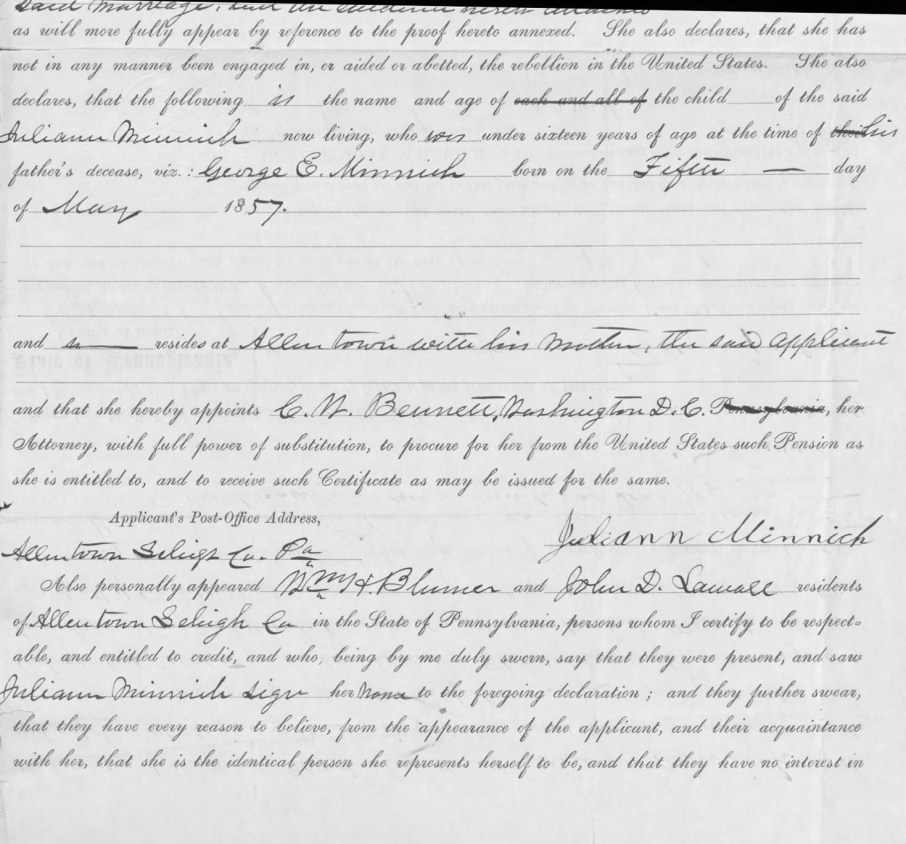 said marriage, and
as will more fully appear by reference to the proof hereto annexed. She also declares, that she has
not in any manner been engaged in, or aided or abetted, the rebellion in the United States. She also
declares, that the following is the name and age of each and all of the child of the said
Juliann Minnich now living, who was under sixteen years of age at the time of their his
father's decease, viz.: George E. Minnich born on the Fifth — day
of May 1857.
and resides at Allentown with his mother, the said applicant
and that she hereby appoints C. W. Bennett, Washington D. C. Pennsylvania, her
Attorney, with full power of substitution, to procure for her from the United States such Pension as
she is entitled to, and to receive such Certificate as may be issued for the same.
Applicant's Post-Office Address,
Juliann Minnich
Allentown Lehigh Co. Pa
Also personally appeared Wm H. Blumer and John D. Lawall residents
of Allentown Lehigh Co in the State of Pennsylvania, persons whom I certify to be respect=
able, and entitled to credit, and who, being by me duly sworn, say that they were present, and saw
Juliann Minnich sign her name to the foregoing declaration; and they further swear,
that they have every reason to believe, from the appearance of the applicant, and their acquaintance
with her, that she is the identical person she represents herself to be, and that they have no interest in